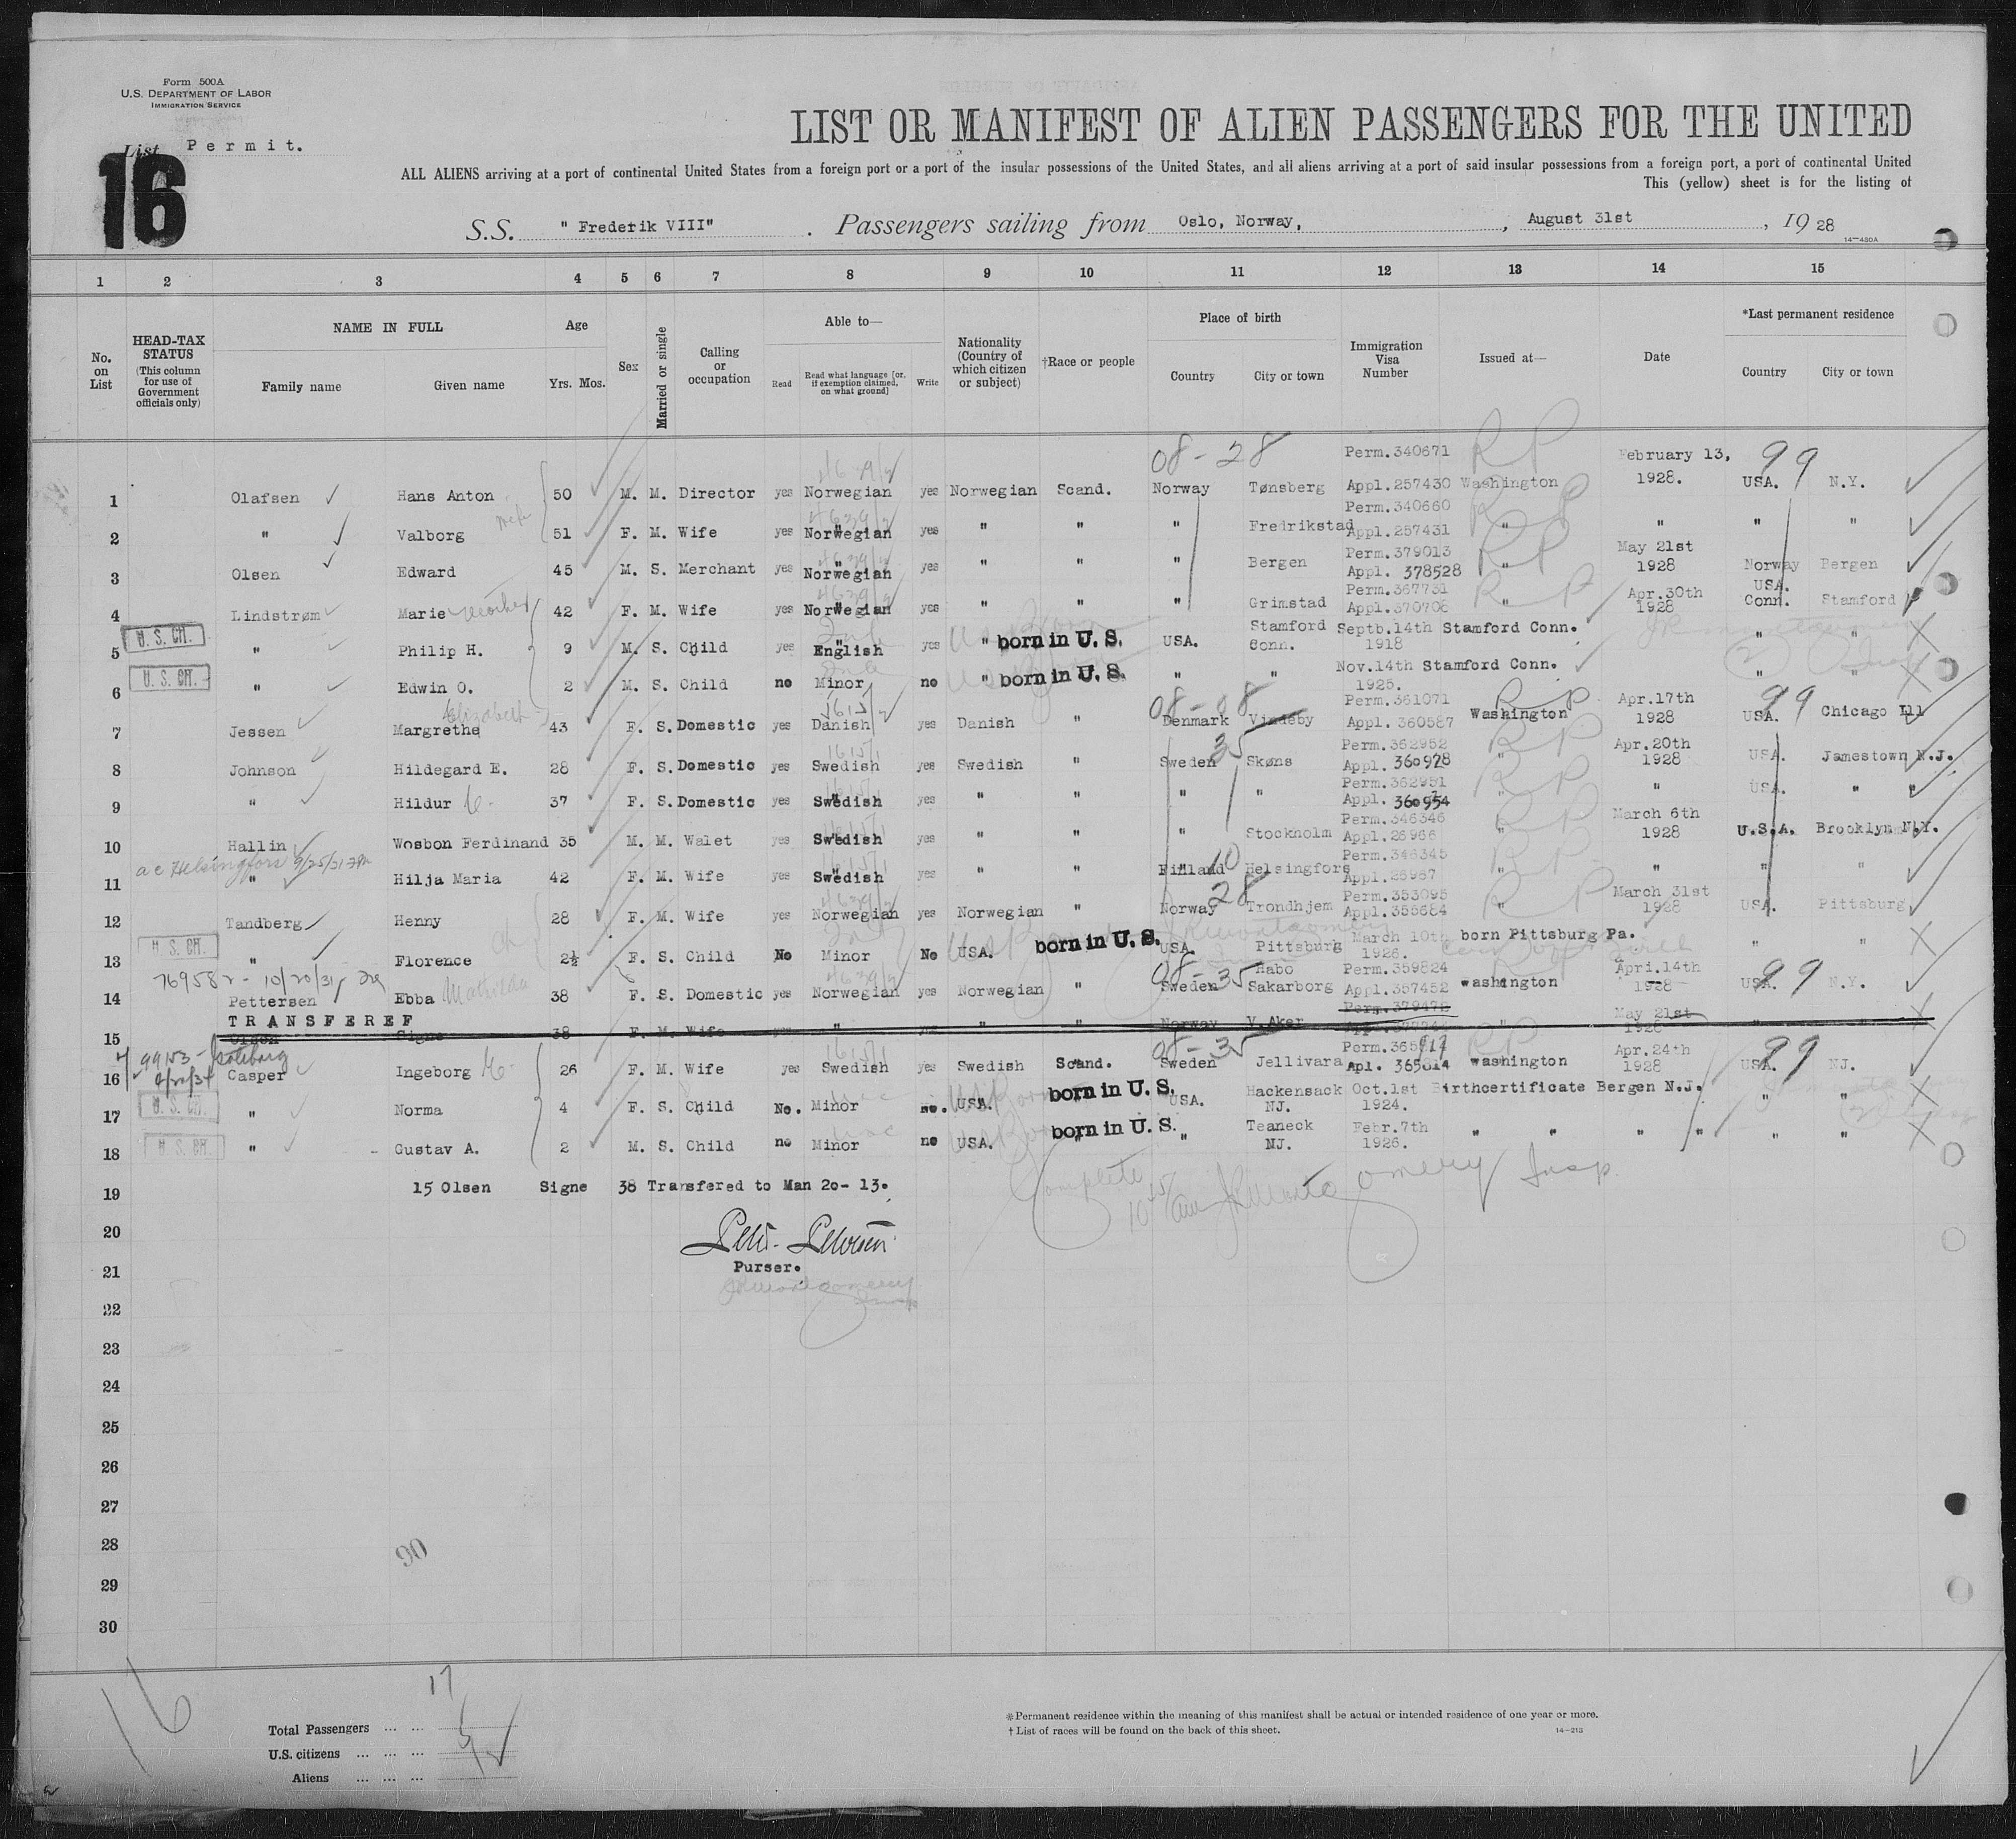 Form 500A
U.S. DEPARTMENT OF LABOR
IMMIGRATION SERVICE
List Permit.
16
LIST OR MANIFEST OF ALIEN PASSENGERS FOR THE UNITED
ALL ALIENS arriving at a port of continental United States from a foreign port or a port of the insular possessions of the United States, and all aliens arriving at a port of said insular possessions from a foreign port, a port of continental United
This (yellow) sheet is for the listing of
S.S. " Frederik VIII" . Passengers sailing from Oslo, Norway, , August 31st , 19 28
14—430A
1 2 3 4 5 6 7 8 9 10 11 12 13 14 15
No. on List
HEAD-TAX STATUS (This column for use of Government officials only)
NAME IN FULL
Family name Given name
Age
Yrs. Mos.
Sex
Married or single
Calling or occupation
Able to—
Read Read what language [or, if exemption claimed, on what ground] Write
Nationality (Country of which citizen or subject)
†Race or people
Place of birth
Country City or town
Immigration Visa Number
Issued at—
Date
*Last permanent residence
Country City or town
08-28 Perm.340671 RP February 13, 99
1 Olafsen Hans Anton 50 M. M. Director yes Norwegian yes Norwegian Scand. Norway Tønsberg Appl.257430 Washington 1928. USA. N.Y.
Perm.340660
2 " Valborg wife 51 F. M. Wife yes Norwegian yes " " " Fredrikstad Appl.257431 " " " "
Perm.379013 May 21st
3 Olsen Edward 45 M. S. Merchant yes Norwegian yes " " " Bergen Appl. 378528 " 1928 Norway Bergen
Perm.367731 Apr.30th USA.
4 Lindstrøm Marie mother 42 F. M. Wife yes Norwegian yes " " " Grimstad Appl.370708 1928 Conn. Stamford
U. S. CH. Stamford Septb.14th Stamford Conn.
5 " Philip H. 9 M. S. Child yes English yes " born in U. S. USA. Conn. 1918 " "
U. S. CH. Nov.14th Stamford Conn.
6 " Edwin O. 2 M. S. Child no Minor no " born in U. S. " " 1925. " "
Elizabeth 08-08 Perm.361071 RP Apr.17th 99
7 Jessen Margrethe 43 F. S. Domestic yes Danish yes Danish " Denmark Vindeby Appl. 360587 Washington 1928 USA. Chicago Ill
35 Perm.362952 Apr.20th
8 Johnson Hildegard E. 28 F. S. Domestic yes Swedish yes Swedish " Sweden Skøns Appl. 360978 " 1928 USA. Jamestown N.J.
Perm.362951
9 " Hildur 37 F. S. Domestic yes Swedish yes " " " " Appl. 360954 " " USA. " "
Perm.346346 March 6th
10 Hallin Wosbon Ferdinand 35 M. M. Walet yes Swedish yes " " " Stockholm Appl.26966 " 1928 U.S.A. Brooklyn N.Y.
a c Helsingfors 9/25/31 Perm.346345
11 " Hilja Maria 42 F. M. Wife yes Swedish yes " " Finland 10 Helsingfors Appl.26967 " " " "
28 Perm.353095 March 31st
12 Tandberg Henny 28 F. M. Wife yes Norwegian yes Norwegian " Norway Trondhjem Appl.355684 " 1928 USA. Pittsburg
U. S. CH. March 10th born Pittsburg Pa.
13 " Florence 2½ F. S. Child No Minor No USA. born in U. S. USA. Pittsburg 1926. " "
769582 - 10/20/31 08-35 Habo Perm.359824 Apri.14th 99
14 Pettersen Ebba Mathilda 38 F. S. Domestic yes Norwegian yes Norwegian " Sweden Sakarborg Appl.357452 washington 1928 USA. N.Y.
TRANSFEREF May 21st
15 Olsen Signe 38 F. M. Wife yes " yes " " Norway V.Aker 1928 " "
08-35 Perm. RP Apr.24th 99
16 Casper Ingeborg 26 F. M. Wife yes Swedish yes Swedish Scand. Sweden Jellivara Apl. 365814 washington 1928 USA. NJ.
U. S. CH. Hackensack Oct.1st Birthcertificate Bergen N.J.
17 " Norma 4 F. S. Child No. Minor no. USA. born in U. S. USA. NJ. 1924. " "
U. S. CH. Teaneck Febr.7th
18 " Gustav A. 2 M. S. Child no Minor no USA. born in U. S. " NJ. 1926. " " " " " "
19 15 Olsen Signe 38 Transfered to Man 20- 13.
Complete
20
Purser.
21
22
23
24
25
26
27
28
90
29
30
16
17
Total Passengers
U.S. citizens
Aliens
*Permanent residence within the meaning of this manifest shall be actual or intended residence of one year or more.
†List of races will be found on the back of this sheet.
14—213